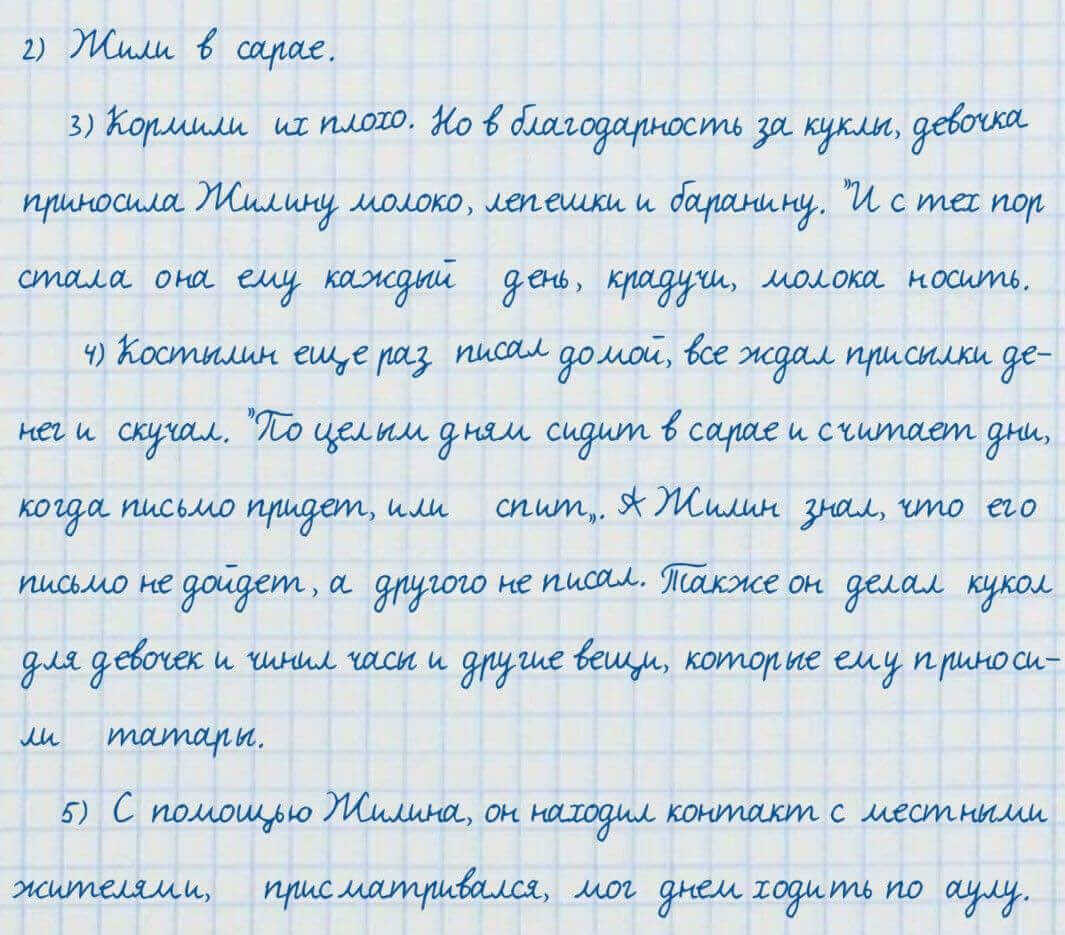 2) Жили в сарае.
3) Кормили их плохо. Но в благодарность за куклы, девочка
приносила Жилину молоко, лепешки и баранину. "И с тех пор
стала она ему каждый день, крадучи, молока носить.
4) Костылин еще раз писал домой, все ждал присылки де-
нег и скучал. "По целым дням сидит в сарае и считает дни,
когда письмо придет, или спит„. А Жилин знал, что его
письмо не дойдет, а другого не писал. Также он делал кукол
для девочек и чинил часы и другие вещи, которые ему приноси-
ли татары.
5) С помощью Жилина, он находил контакт с местными
жителями, присматривался, мог днем ходить по аулу.